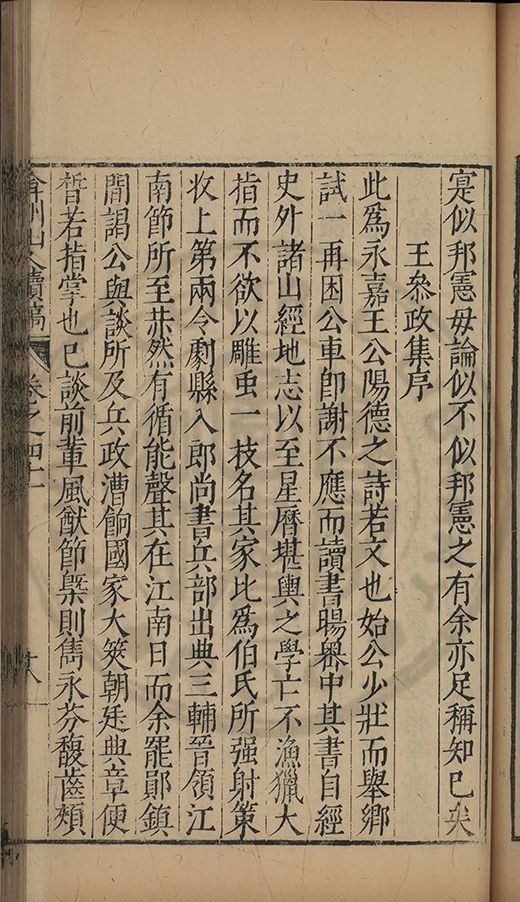 寔似邦憲毋論似不似邦憲之有余亦足稱知已矣
王叅政集序
此爲永嘉王公陽德之詩若文也始公少壯而舉鄉
試一再困公車卽謝不應而讀書暘嶴中其書自經
史外諸山經地志以至星曆堪輿之學亡不漁獵大
指而不欲以雕虫一枝名其家此爲伯氏所强射策
收上第兩令劇縣入郎尚書兵部出典三輔晉領江
南節所至茮然有循能聲其在江南日而余罷鄖鎮
閒謁公與談所及兵政漕餉國家大筴朝廷典章便
晳若指掌也已談前輩風猷節槩則雋永芬馥齒頰
弇州山人續稿 卷之四十一